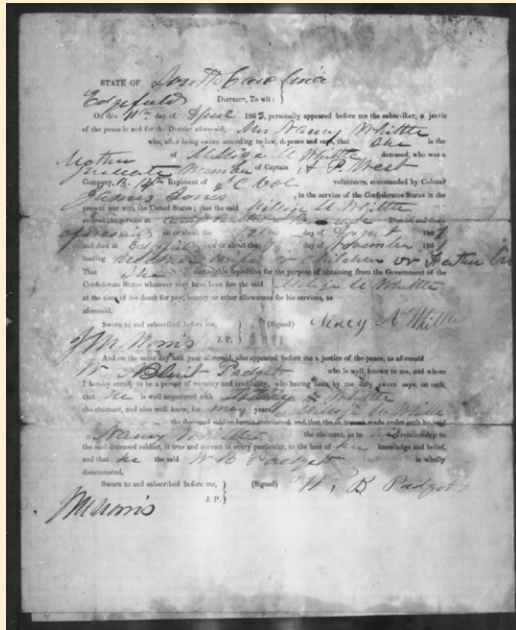 STATE OF South Carolina
Edgefield District, To wit:
On this 11th day of April 1863, personally appeared before me the subscriber, a justice
of the peace in and for the District aforesaid, Mrs Nancy Whittle
who, after being sworn according to law, deposes and says, that she is the
Mother of Whittle deceased, who was a
private Member of Captain A P. West
Company, B. 14th Regiment of S C Vol volunteers, commanded by Colonel
James Jones in the service of the Confederate States in the
present war with the United States; that the said Whittle
entered the service at District and State
aforesaid on or about the day of August 186
and died at Edgefield on or about the day of November 186
leaving neither wife or Children or Father but
That she makes this deposition for the purpose of obtaining from the Government of the
Confederate States whatever may have been due the said Whittle
at the time of his death for pay, bounty or other allowances for his services, as
aforesaid.
Sworn to and subscribed before me, (Signed) Nancy A Whittle
J M Norris J. P.
And on the same day and year aforesaid, also appeared before me a justice of the peace, as aforesaid
W Padget who is well known to me, and whom
I hereby certify to be a person of veracity and credibility, who having been by me duly sworn says, on oath,
that he is well acquainted with Whittle
the claimant, and also well knew, for many years Whittle
the deceased soldier herein mentioned, and that the statement made under oath by said
Nancy Whittle the claimant, as to her relationship to
the said deceased soldier, is true and correct in every particular, to the best of his knowledge and belief,
and that he the said W B Padget is wholly
disinterested.
Sworn to and subscribed before me, (Signed) W. B Padget
J M Norris J. P.